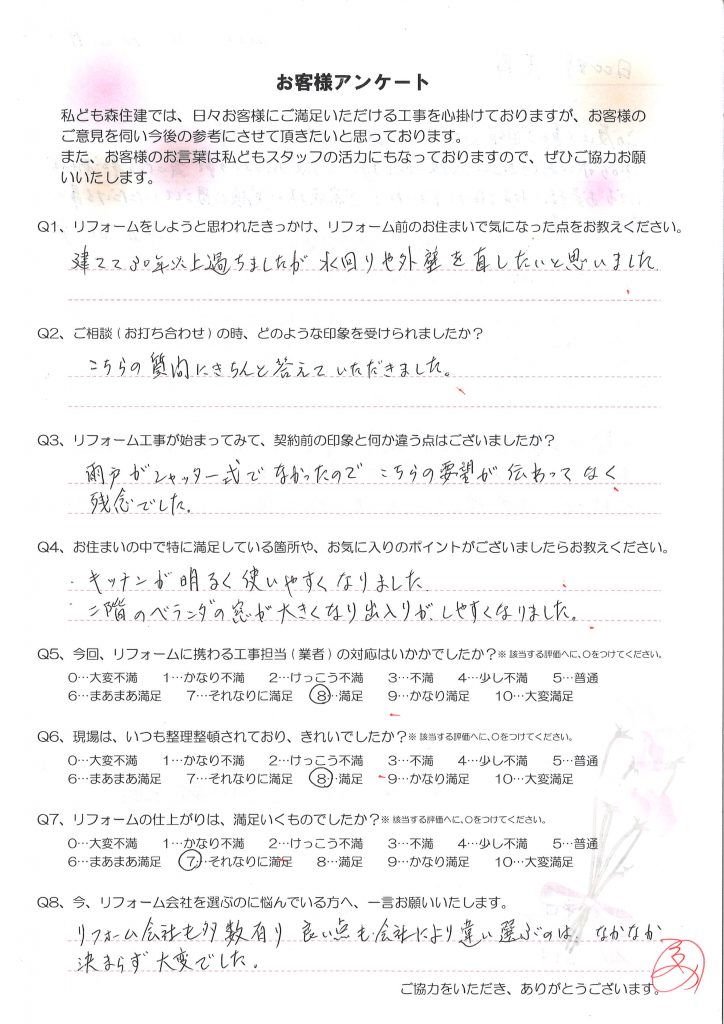 お客様アンケート
私ども森住建では、日々お客様にご満足いただける工事を心掛けておりますが、お客様の
ご意見を伺い今後の参考にさせて頂きたいと思っております。
また、お客様のお言葉は私どもスタッフの活力にもなっておりますので、ぜひご協力お願
いいたします。
Q1、リフォームをしようと思われたきっかけ、リフォーム前のお住まいで気になった点をお教えください。
建てて30年以上過ちましたが 水回りや外壁を直したいと思いました
Q2、ご相談(お打ち合わせ)の時、どのような印象を受けられましたか?
こちらの質問にきちんと答えていただきました。
Q3、リフォーム工事が始まってみて、契約前の印象と何か違う点はございましたか?
雨戸がシャッター式でなかったので こちらの要望が伝わってなく
残念でした。
Q4、お住まいの中で特に満足している箇所や、お気に入りのポイントがございましたらお教えください。
・キッチンが明るく使いやすくなりました
・二階のベランダの窓が大きくなり出入りが、しやすくなりました。
Q5、今回、リフォームに携わる工事担当(業者)の対応はいかかでしたか?※ 該当する評価へに、○をつけてください。
0…大変不満 1…かなり不満 2…けっこう不満 3…不満 4…少し不満 5…普通
6…まあまあ満足 7…それなりに満足 8…満足 9…かなり満足 10…大変満足
Q6、現場は、いつも整理整頓されており、きれいでしたか?※ 該当する評価へに、○をつけてください。
0…大変不満 1…かなり不満 2…けっこう不満 3…不満 4…少し不満 5…普通
6…まあまあ満足 7…それなりに満足 8…満足 9…かなり満足 10…大変満足
Q7、リフォームの仕上がりは、満足いくものでしたか?※ 該当する評価へに、○をつけてください。
0…大変不満 1…かなり不満 2…けっこう不満 3…不満 4…少し不満 5…普通
6…まあまあ満足 7…それなりに満足 8…満足 9…かなり満足 10…大変満足
Q8、今、リフォーム会社を選ぶのに悩んでいる方へ、一言お願いいたします。
リフォーム会社も多数有り 良い点も会社により違い選ぶのは、なかなか
決まらず大変でした。
ご協力をいただき、ありがとうございます。